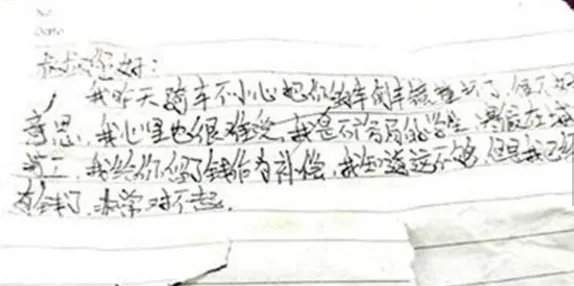 No.
Date
叔叔您好:
我昨天骑车不小心把你的车倒车镜撞坏了,很不好
意思,我心里也很难受,我是不高的学生,寒假在
打工,我给你了钱作为补偿,我知道远不够,但是我已
有钱了,非常对不起.